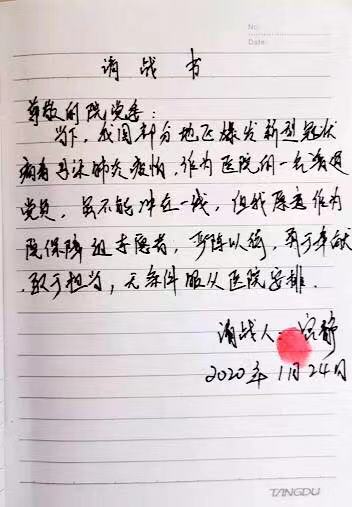 No:
Date:
请战书
尊敬的院党委：
当下，我国部分地区爆发新型冠状
病毒感染肺炎疫情，作为医院的一名普通
党员，虽不能冲在一线，但我愿意作为
院保障组志愿者，严阵以待，勇于奉献
敢于担当，无条件服从医院安排．
请战人：宫静
2020年1月24日
TANGDU